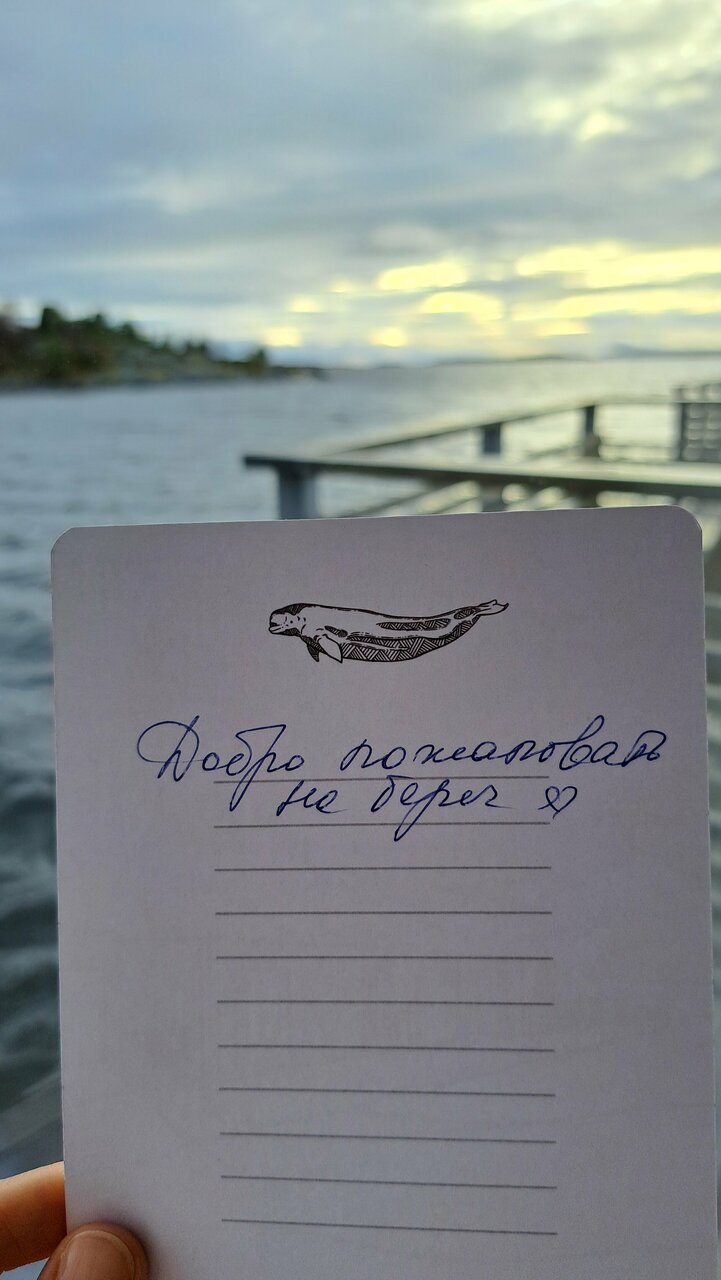 Добро пожаловать
на берег ♡